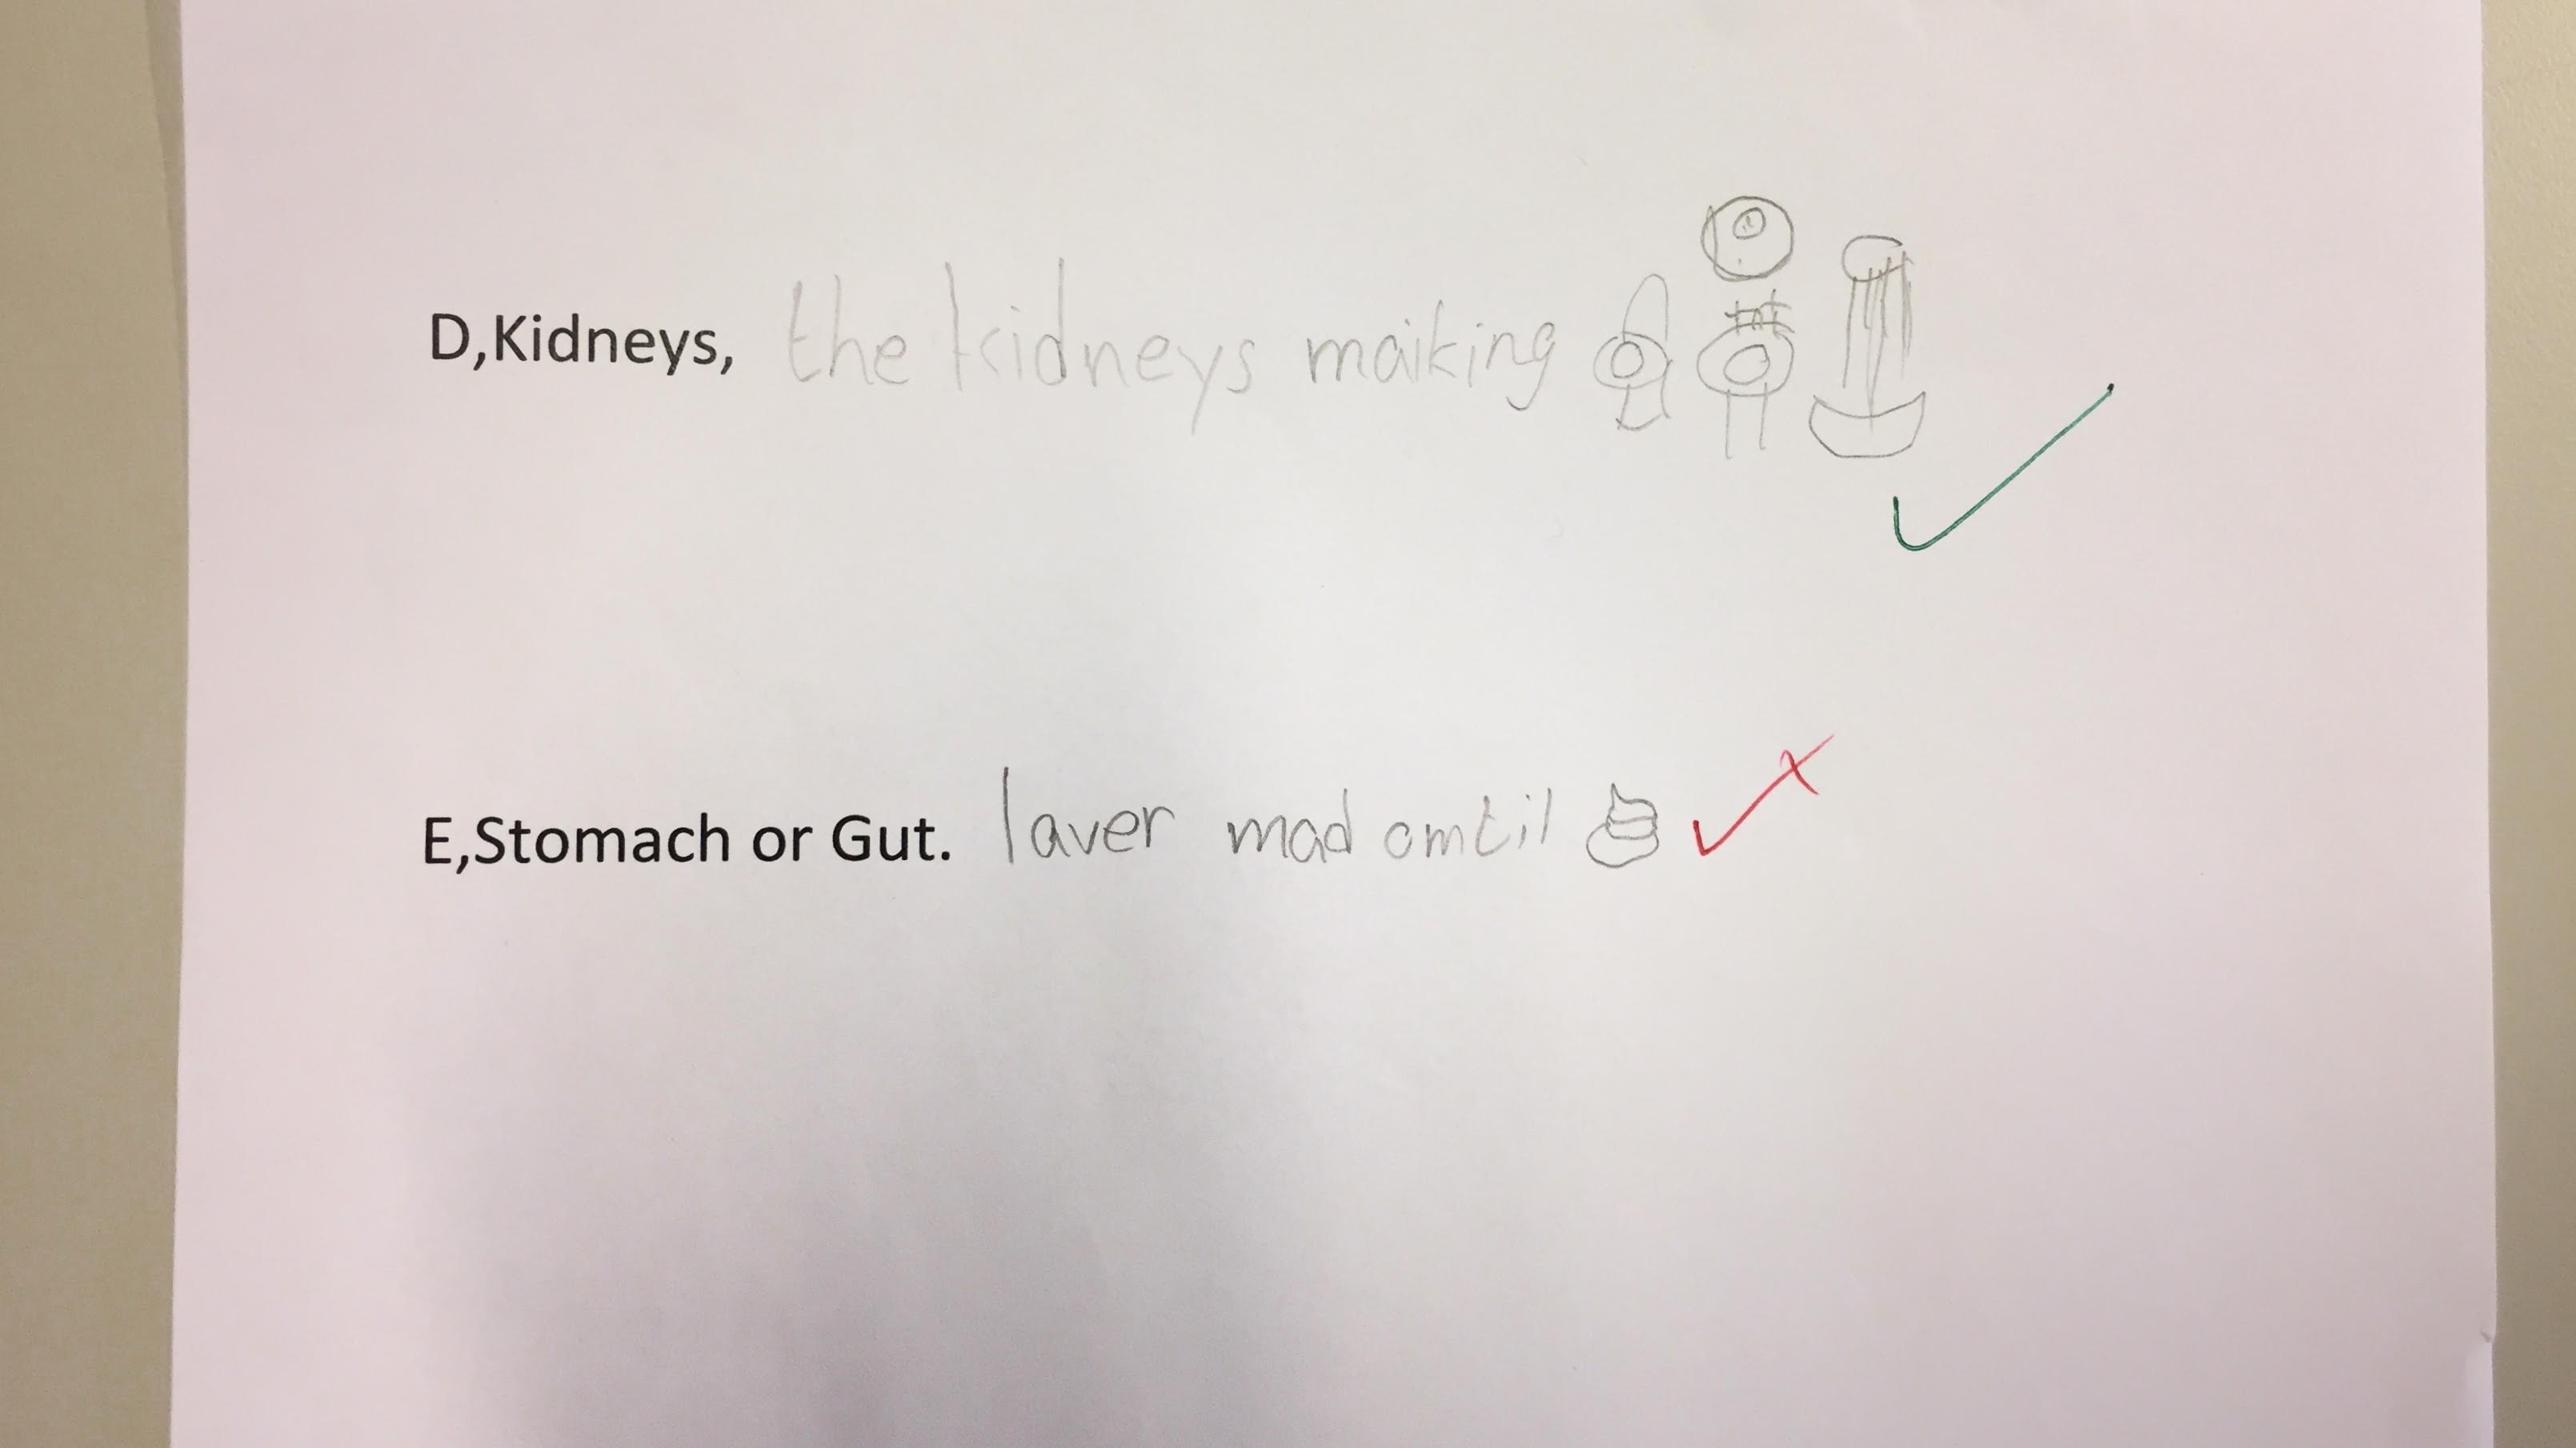 D,Kidneys, the kidneys maiking
E,Stomach or Gut. laver mad omtil